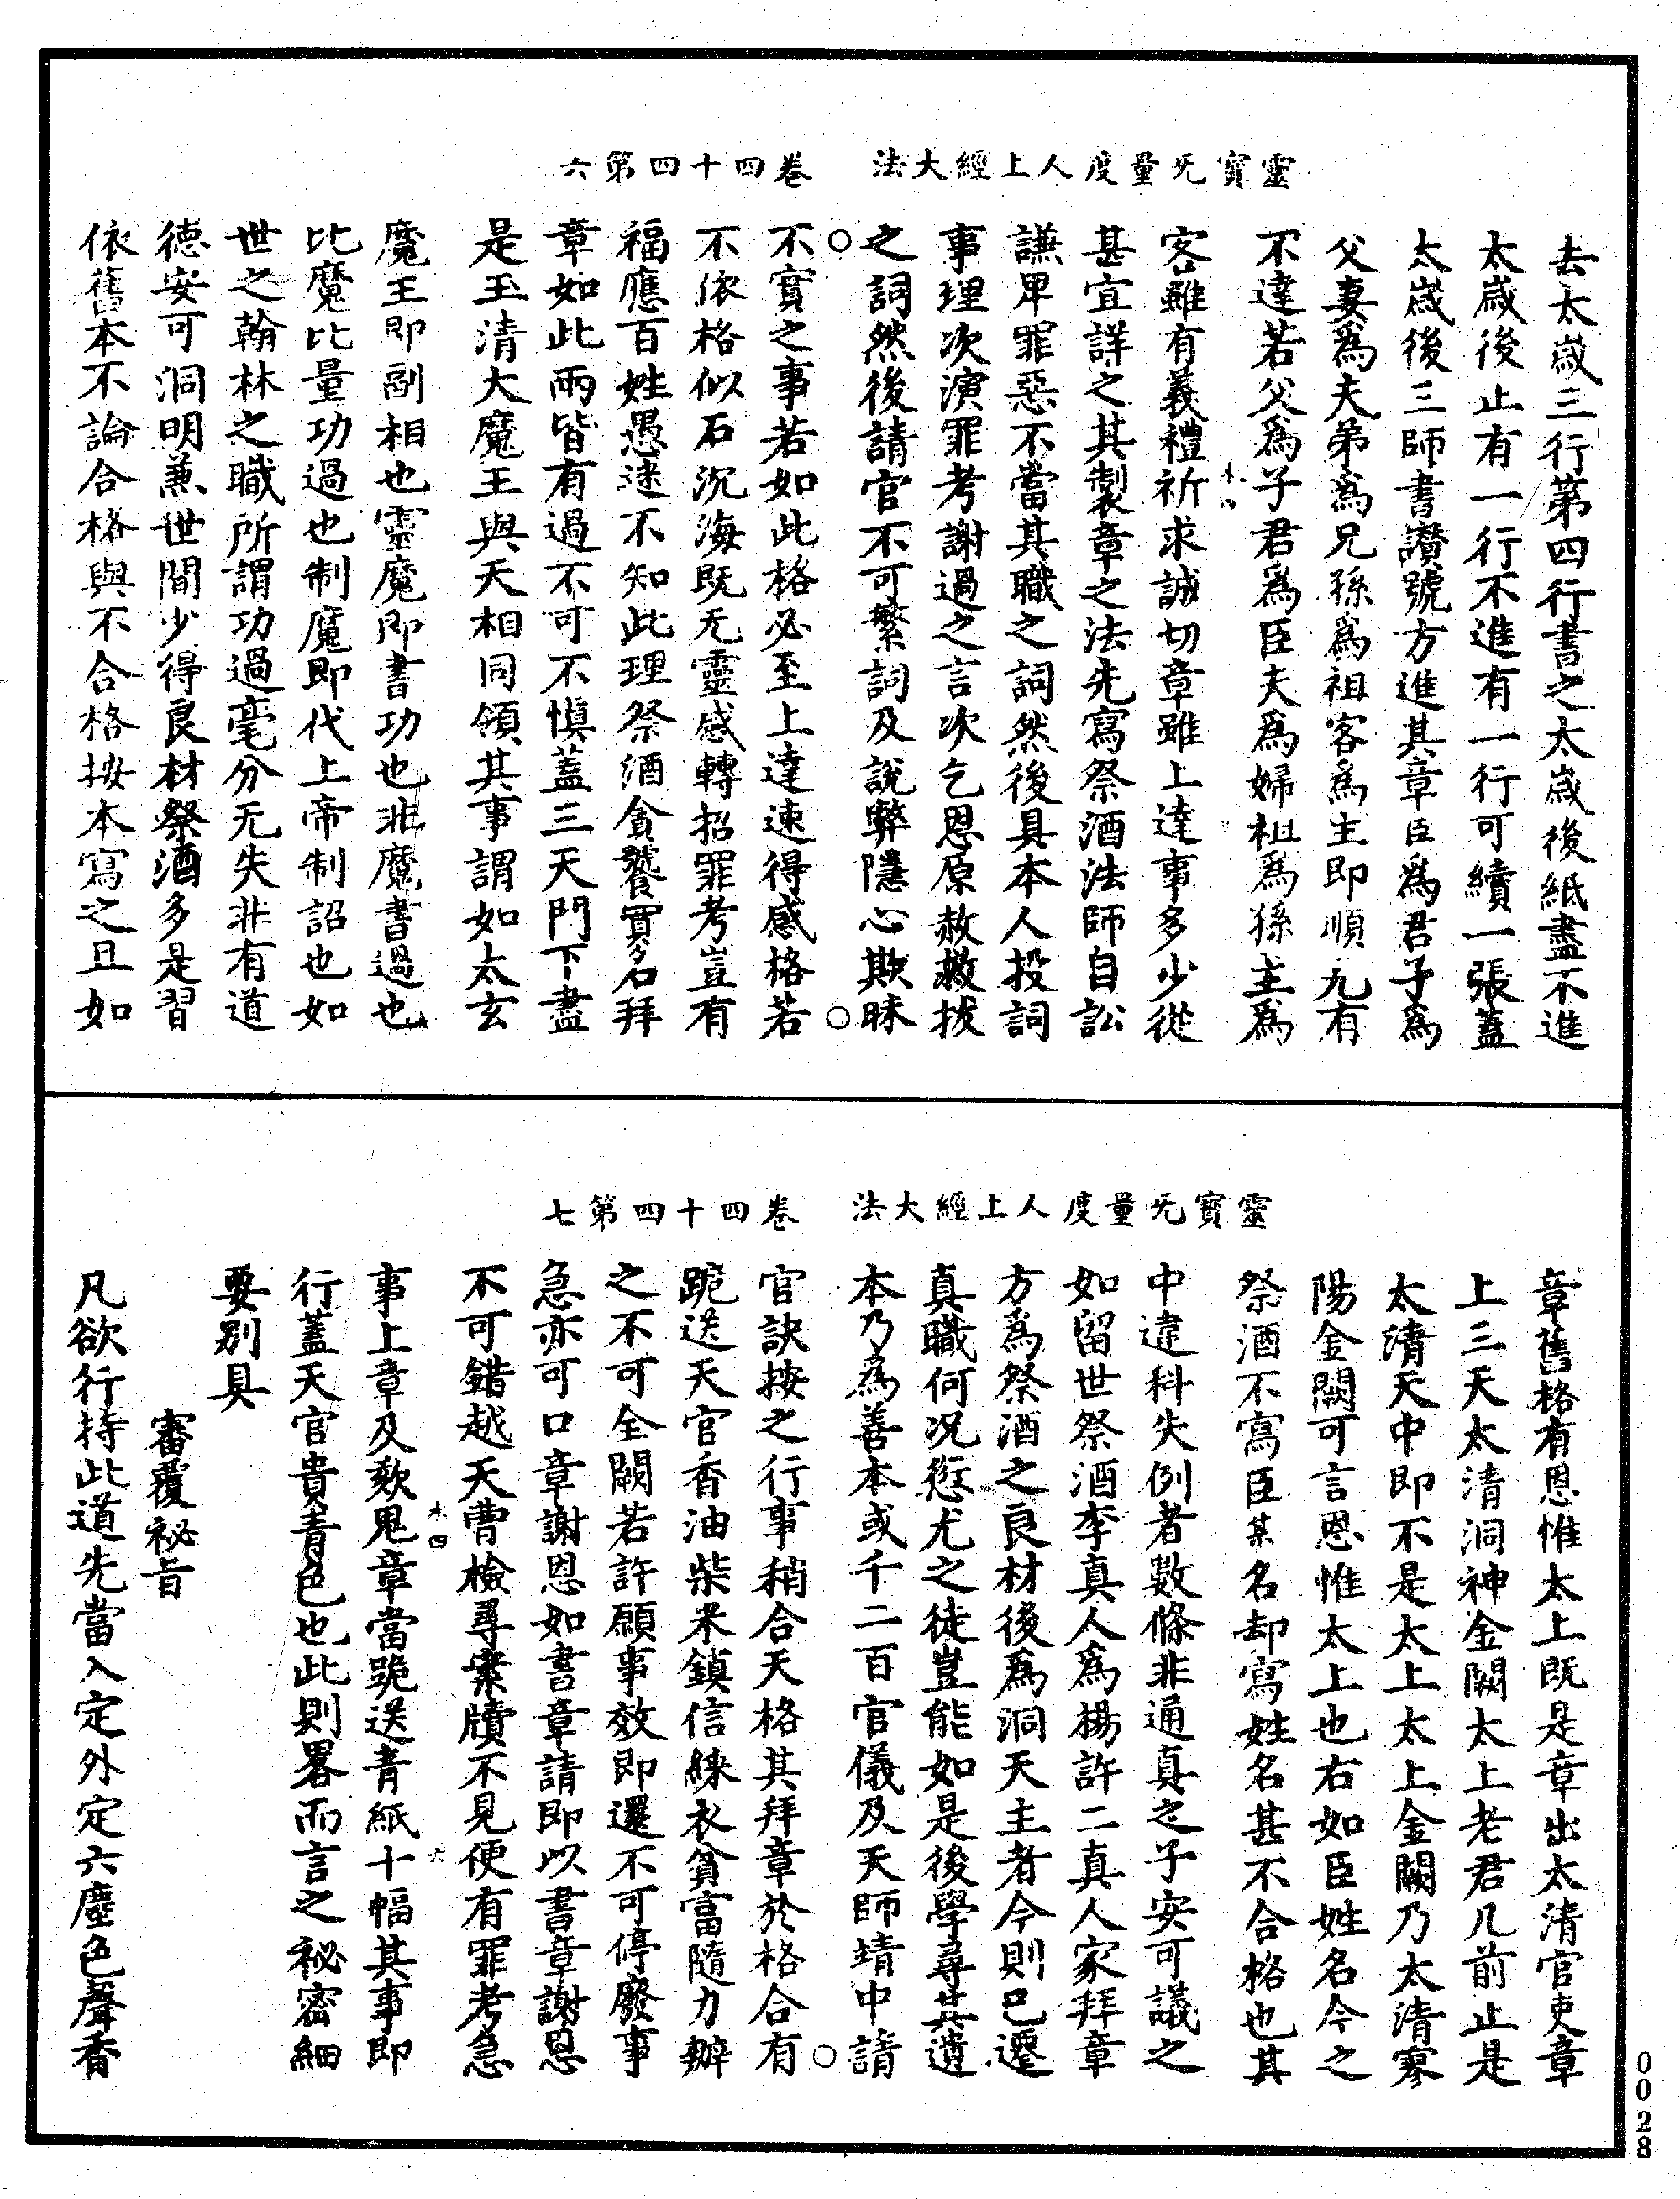 靈寶旡量度人上經大法　卷四十四第六
去太歲三行第四行書之太歲後紙盡不進
太歲後止有一行不進有一行可續一張蓋
太歲後三師書讃號方進其章臣爲君子爲
父妻爲夫弟爲兄孫爲祖客爲主即順九有
不達若父爲子君爲臣夫爲婦祖爲孫主爲
客雖有義禮祈求誠切章雖上達事多少從
甚宜詳之其製章之法先寫祭酒法師自訟
謙卑罪惡不當其職之詞然後具本人投詞
事理次演罪考謝過之言次乞恩原赦救拔
之詞然後請官不可繁詞及說弊隱心欺昧
不實之事若如此格必至上達速得感格若
不依格似石沉海既无靈感轉招罪考豈有
福應百姓愚迷不知此理祭酒貪饕買名拜
章如此兩皆有過不可不慎蓋三天門下盡
是玉清大魔王與天相同領其事謂如太玄
魔王即副相也靈魔即書功也非魔書過也
比魔比量功過也制魔即代上帝制詔也如
世之翰林之職所謂功過毫分无失非有道
德安可洞明兼世間少得良材祭酒多是習
依舊本不論合格與不合格按本寫之且如
靈寶旡量度人上經大法　卷四十四第七
章舊格有恩惟太上既是章出太清官吏章
上三天太清洞神金闕太上老君几前止是
太清天中即不是太上太上金闕乃太清寥
陽金闕可言恩惟太上也右如臣姓名今之
祭酒不寫臣某名却寫姓名甚不合格也其
中違科失例者數條非通真之子安可議之
如留世祭酒李真人爲楊許二真人家拜章
方爲祭酒之良材後爲洞天主者今則已遷
真職何况愆尤之徒豈能如是後學尋其遺
本乃爲善本或千二百官儀及天師靖中請
官訣按之行事稍合天格其拜章於格合有
跪送天官香油柴米鎮信綵衣貧富隨力辦
之不可全闕若許願事效即還不可停廢事
急亦可口章謝恩如書章請即以書章謝恩
不可錯越天曹檢尋案牘不見便有罪考急
事上章及欻鬼章當跪送青紙十幅其事即
行蓋天官貴青色也此則畧而言之祕密細
要別具
審覆祕旨
凡欲行持此道先當入定外定六塵色聲香
0028